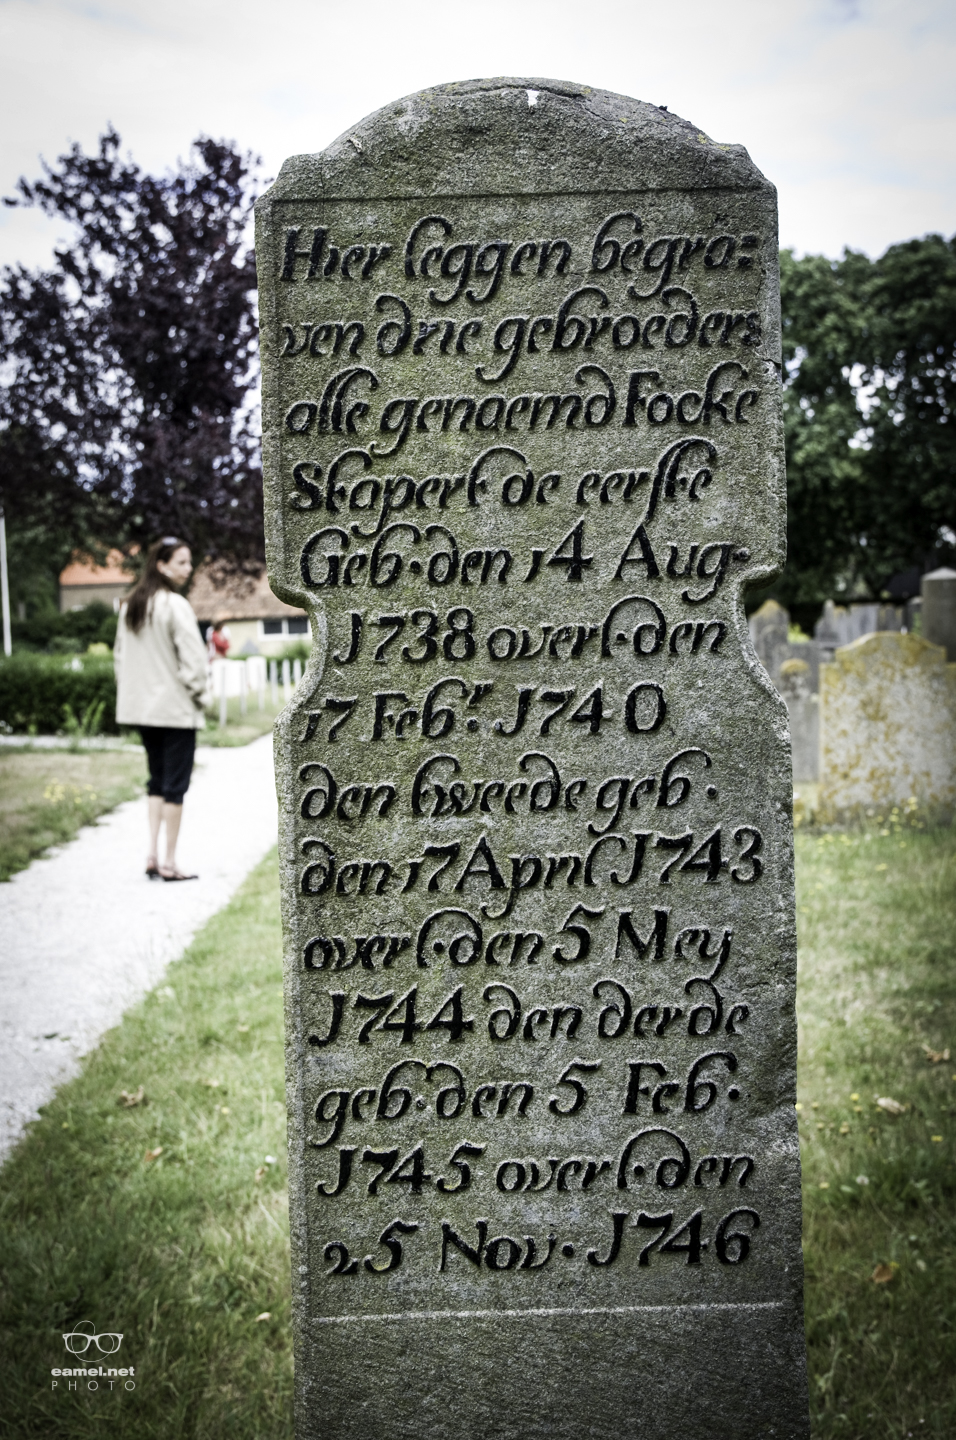 Hier leggen begra=
ven drie gebroeders
alle genaemd Focke
Skapert de eerste
Geb·den 14 Aug·
J738 overl·den
17 Febʳ. J740
den tweede geb·
den 17 April J743
overl·den 5 Mey
J744 den derde
geb·den 5 Feb·
J745 overl·den
25 Nov· J746
eamel.net
PHOTO